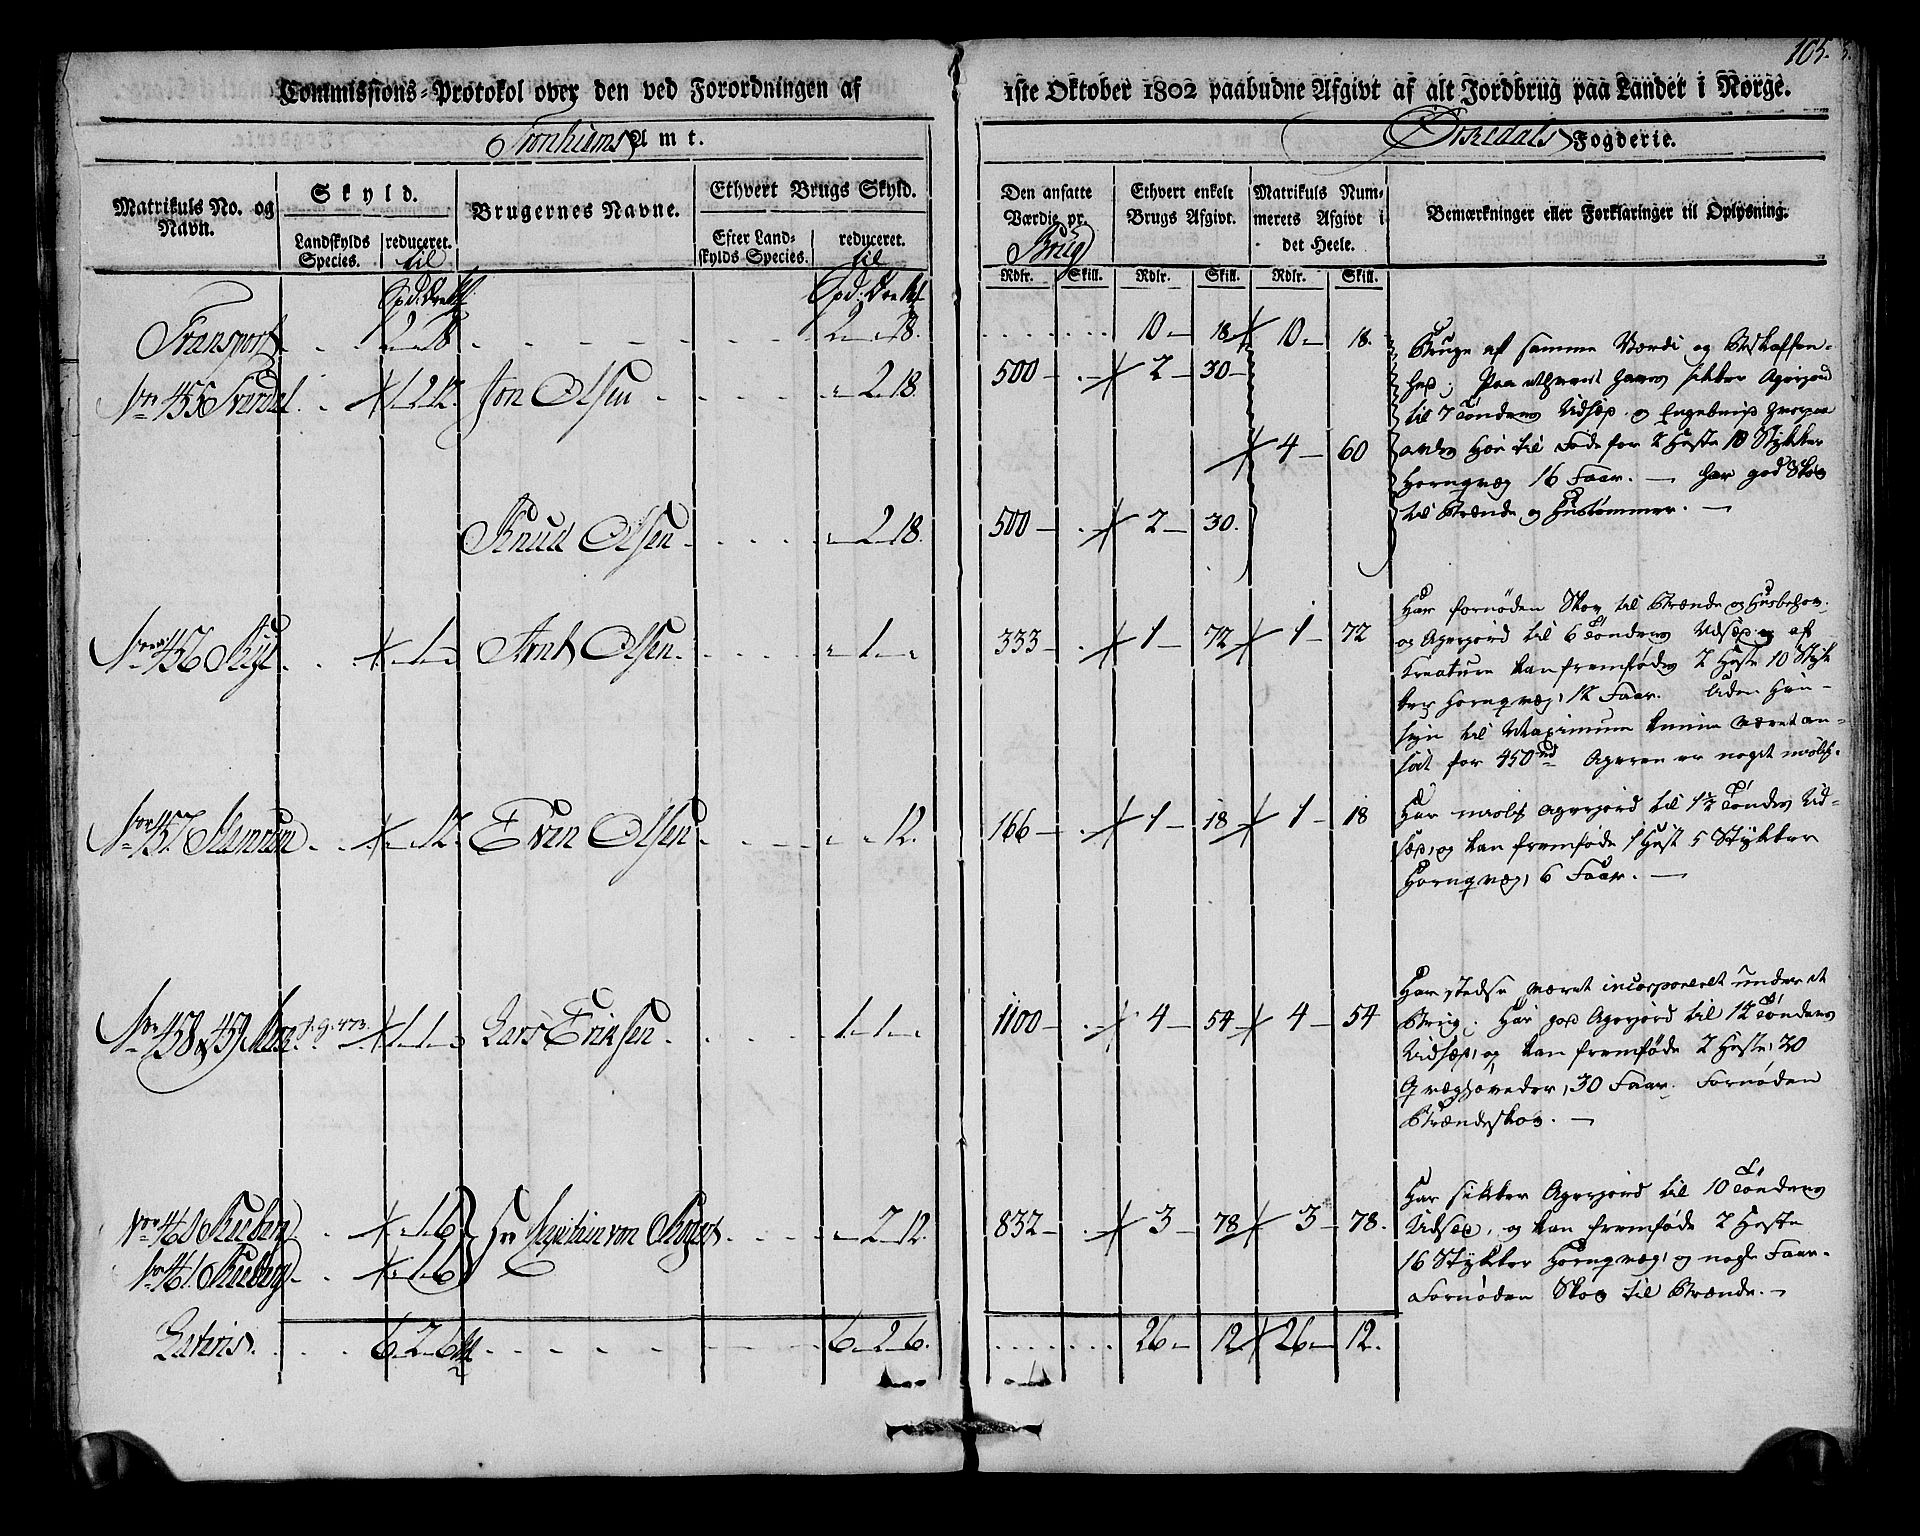 105.
Commissions-Protokol over den ved Forordningen af 1ste Oktober 1802 paabudne Afgivt af alt Jordbrug paa Landet i Norge.
Tronhiems Amt.
Orkedals Fogderie.
Matrikuls No. og Navn.
Skyld.
Landskylds Species.
reduceret.
til
Brugernes Navne.
Ethvert Brugs Skyld.
Efter Landskylds Species.
reduceret.
til
Den ansatte Værdie pr.
Brug
Ethvert enkelt Brugs Afgivt.
Matrikuls Nummerets Afgivt i det Heele.
Bemærkninger eller Forklaringer til Oplysning.
Rdlr. Skill. Rdlr. Skill. Rdlr. Skill.
Transport 2 " 18 2 " 18. 10 - 18 10 - 18.
No 455 1 " 2 " 12. Jon Olsen " 2 " 18. 500 - 2 - 30 -
4 - 60
Knud Olsen " 2 " 18. 500 - 2 - 30.
Bruge af samme Værdi og Beskaffen-
hed; Paa ethvert haves sikker Agerjord
til 7 Tønders Udsæd og Engebund hvorpaa
avles Høe til Føde for 2 Heste 18 Stykker
Hornqvæg 16 Faar. — har god Skov
til Brænde og Hustømmer. —
No 456 " 1 " Arnt Olsen. " 1 " 333 - 1 - 72 1 - 72
Har fornøden Skov til Brænde og Husbehov.
og Agerjord til 6 Tønders Udsæd og af
Kreature kan fremfødes 2 Heste 10 Styk
ker Hornqvæg, 12 Faar. Uden Hen-
syn til Maximum kunne været an-
sat for 450 rd Ageren er noget
No 457 " 12. Even Olsen " " 12. 166 - 1 - 18 1 - 18
Har Agerjord til 1½ Tøndes Ud-
sæd, og kan fremføde 1 Hest 5 Stykker
Hornqvæg, 6 Faar. —
No 458 & 459 Moe 1 " 1 " Lars Eriksen 1 " 1 " 1100 - 4 - 54 4 - 54
Har stedse været incorporeret under et
Brug; Har god Agerjord til 12 Tønders
Udsæd, og kan fremføde 2 Heste, 20
Qvæghøveder, 30 Faar. Fornøden
Brændeskov. —
No 460 " 1 " 6 Hr Capitain von " 2 " 12. 832 - 3 - 78 3 - 78.
No 461 " 1 " 6
Har sikker Agerjord til 10 Tønders
Udsæd, og kan fremføde 2 Heste
16 Stykker Hornqvæg, og nogle Faar.
Fornøden Skov til Brænde. —
Lateris. 6 " 2 " 6 6 " 2 " 6. 26 - 12. 26 - 12.